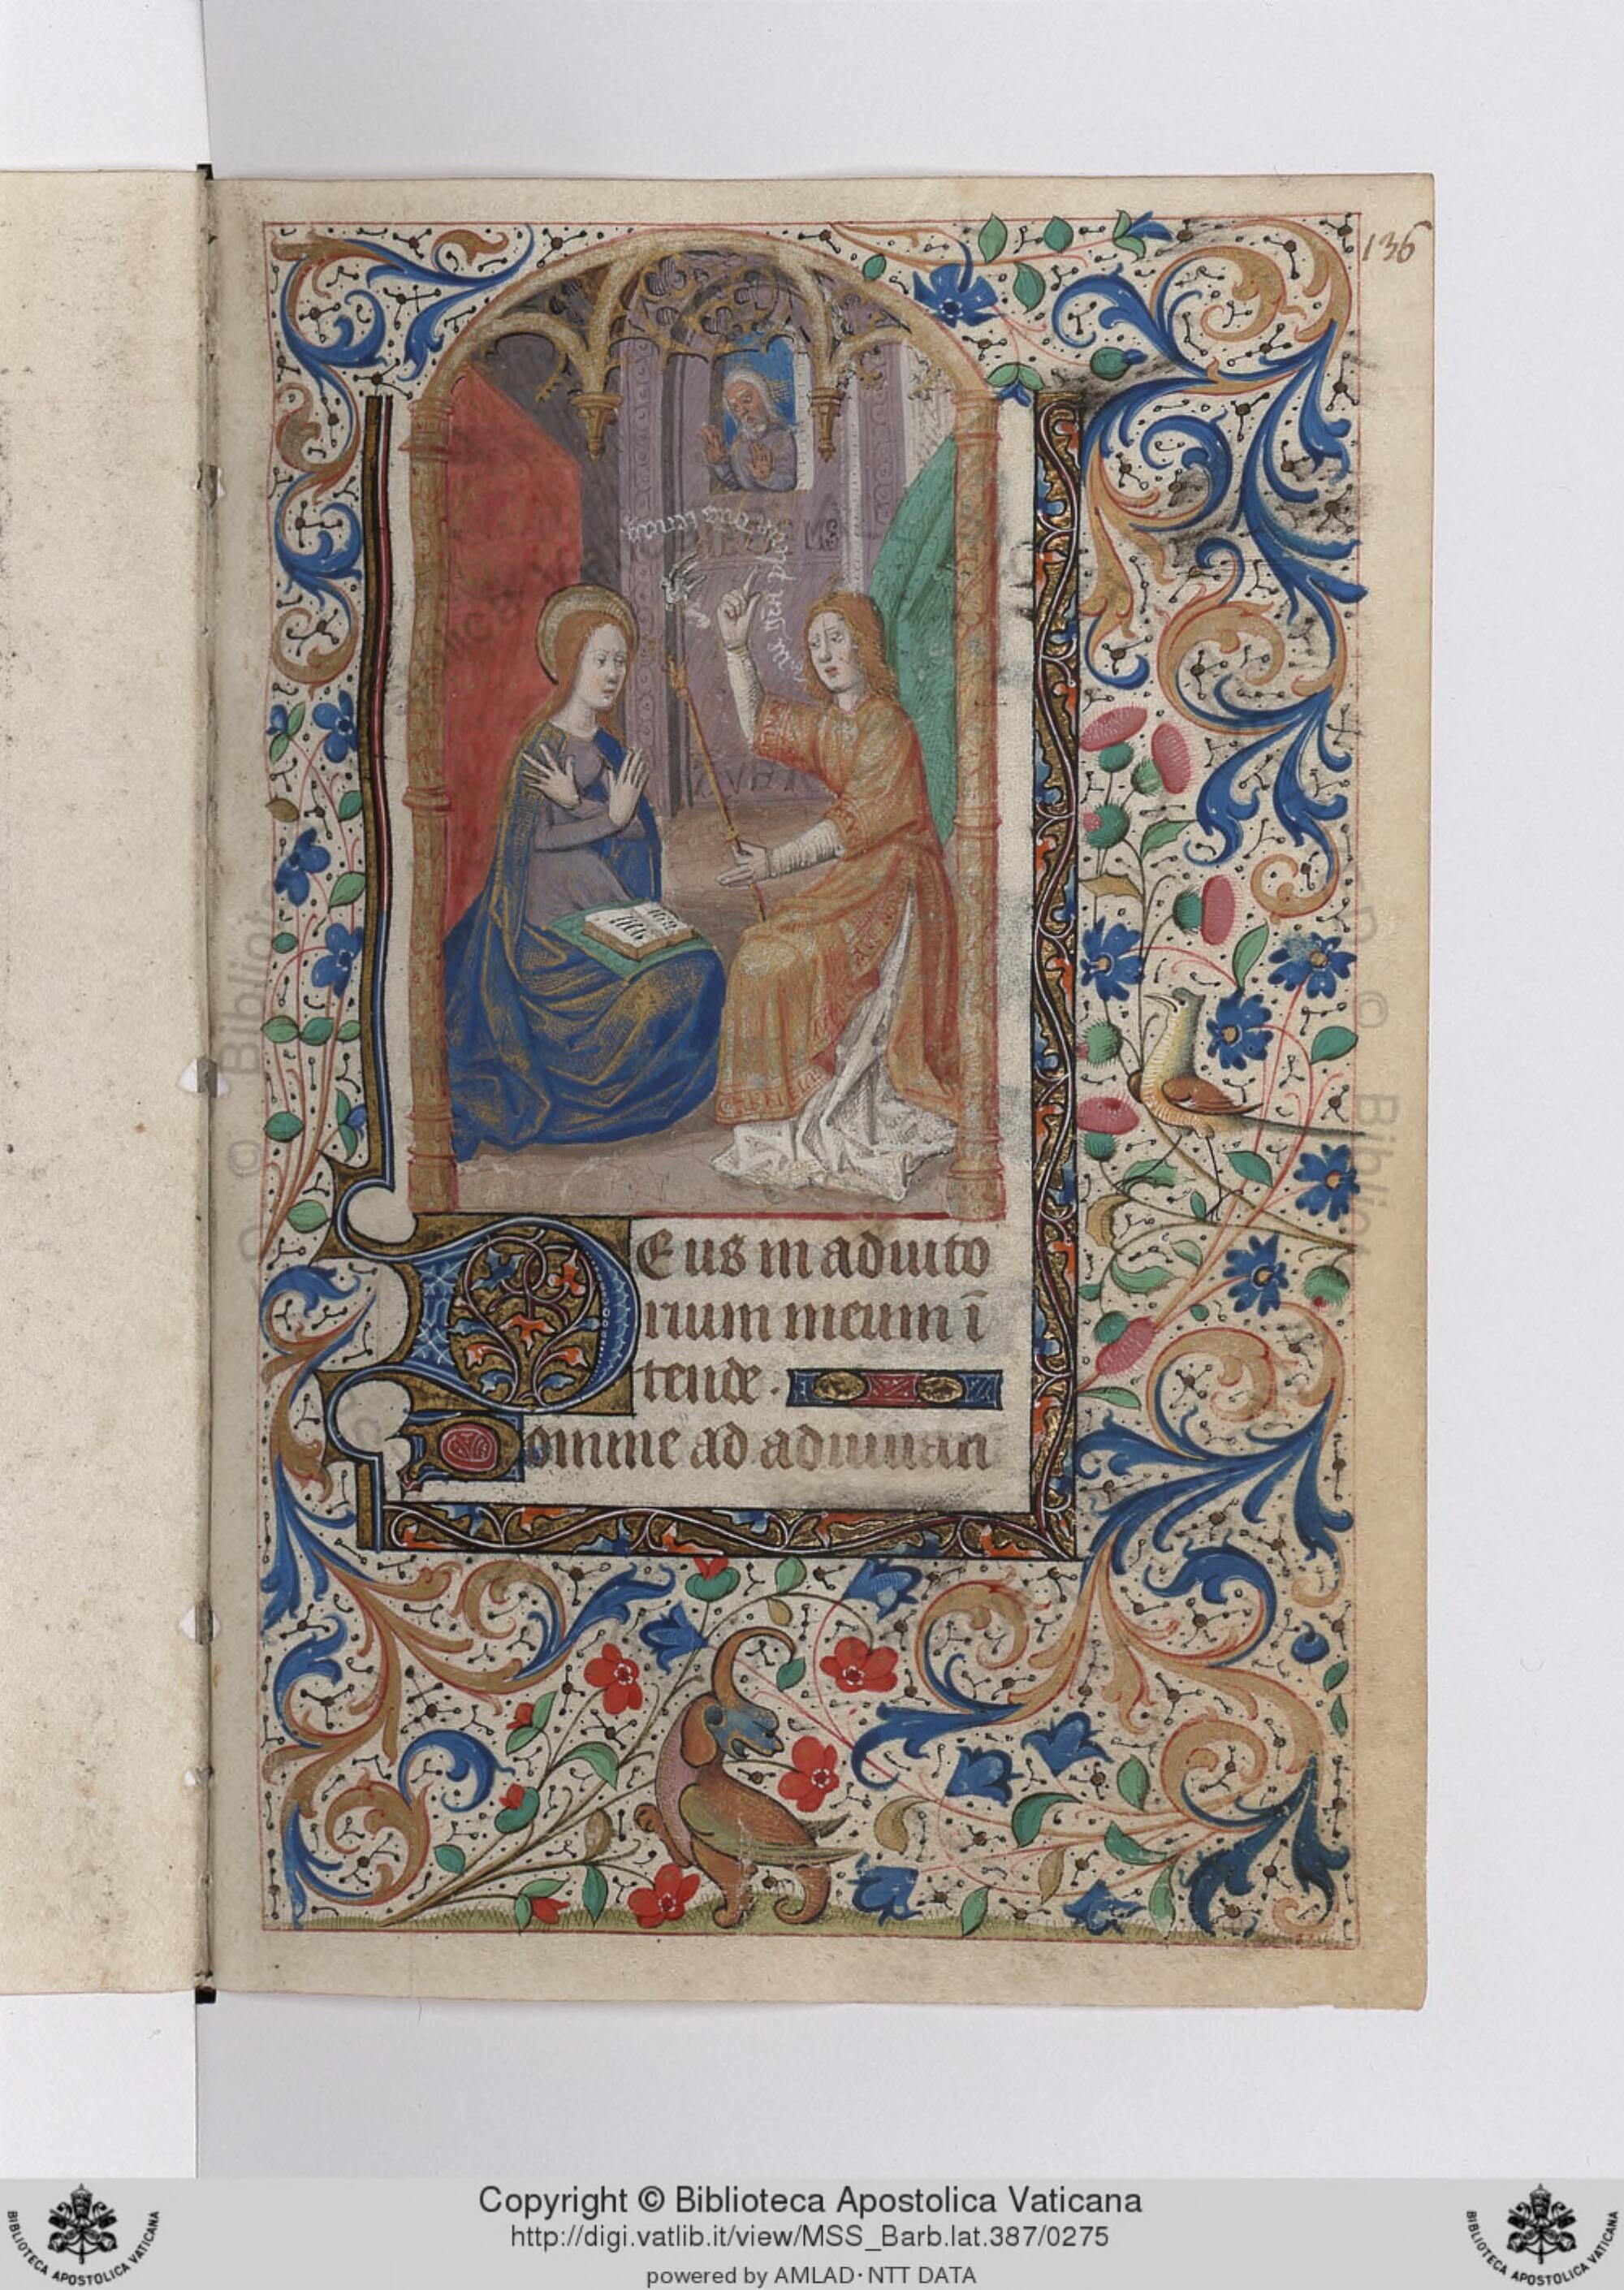 136
Deus in adiuto
rium meum ī
tende.
Domine ad adiuuan
Copyright © Biblioteca Apostolica Vaticana
http://digi.vatlib.it/view/MSS_Barb.lat.387/0275
powered by AMLAD·NTT DATA
BIBLIOTECA APOSTOLICA VATICANA
BIBLIOTECA APOSTOLICA VATICANA